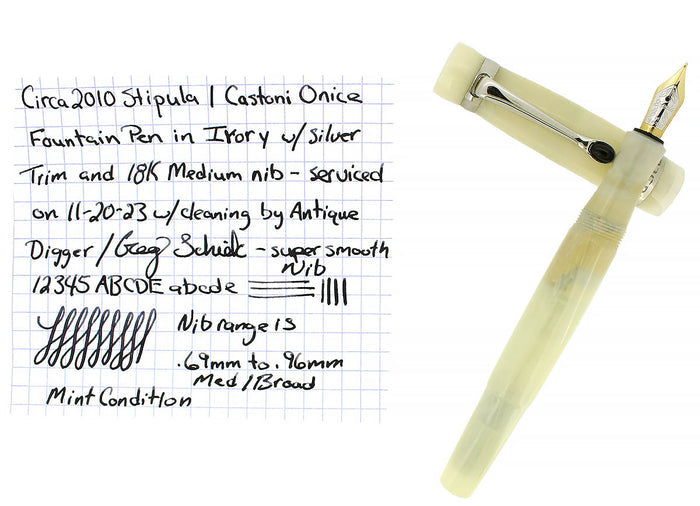 Circa 2010 Stipula I Castoni Onice
Fountain Pen in Ivory w/ Silver
Trim and 18K Medium nib - serviced
on 11-20-23 w/cleaning by Antique
Digger / Greg - super smooth
Nib
12345 ABCDE abcde
Nib range is
.69mm to .96mm
Med/Broad
Mint Condition